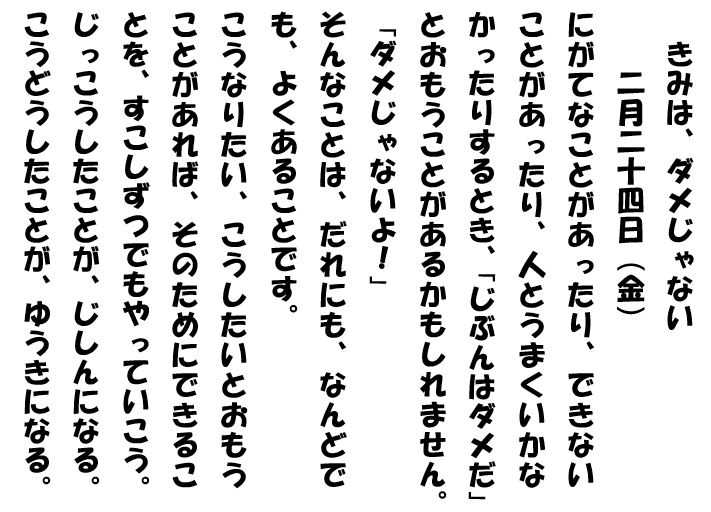 きみは、ダメじゃない
二月二十四日（金）
にがてなことがあったり、できない
ことがあったり、人とうまくいかな
かったりするとき、「じぶんはダメだ」
とおもうことがあるかもしれません。
「ダメじゃないよ！」
そんなことは、だれにも、なんどで
も、よくあることです。
こうなりたい、こうしたいとおもう
ことがあれば、そのためにできるこ
とを、すこしずつでもやっていこう。
じっこうしたことが、じしんになる。
こうどうしたことが、ゆうきになる。